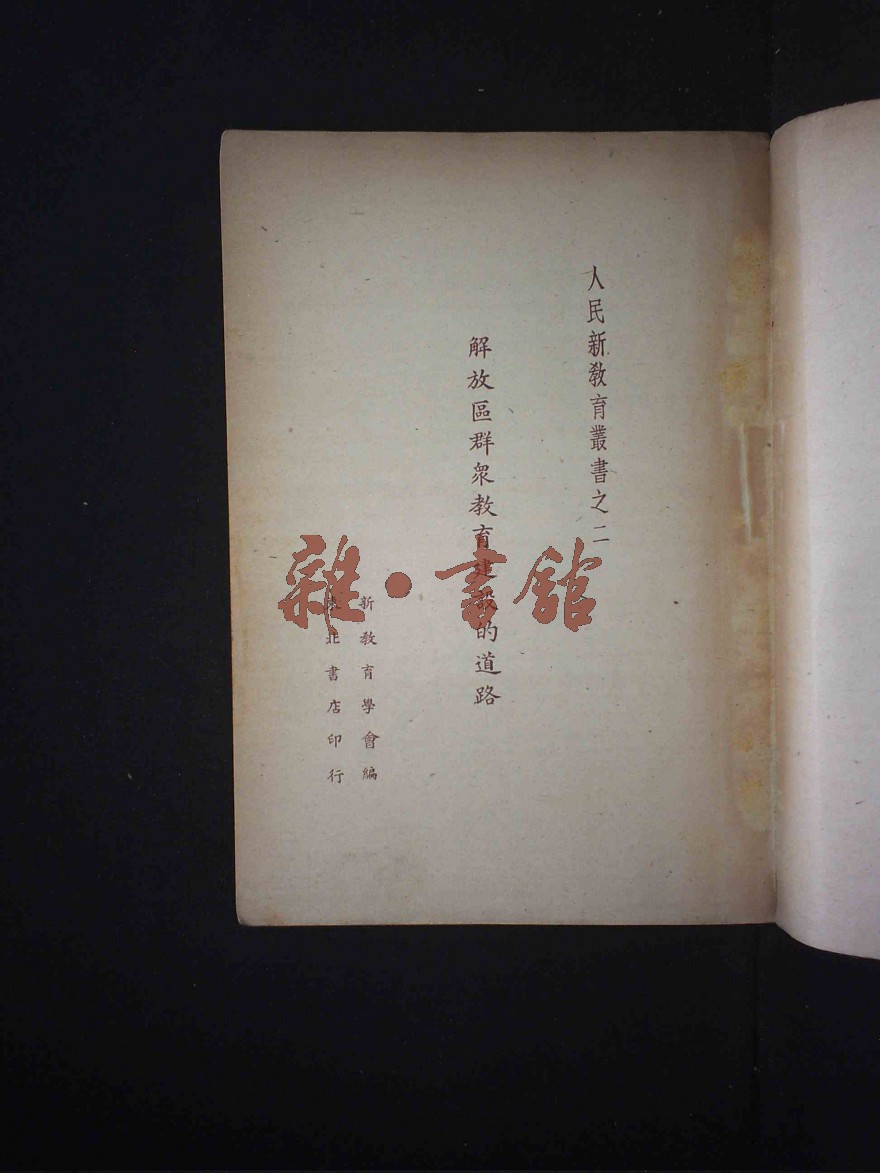 人民新敎育叢書之二
解放區群衆敎育建設的道路
新敎育學會編
東北書店印行
雜·書館